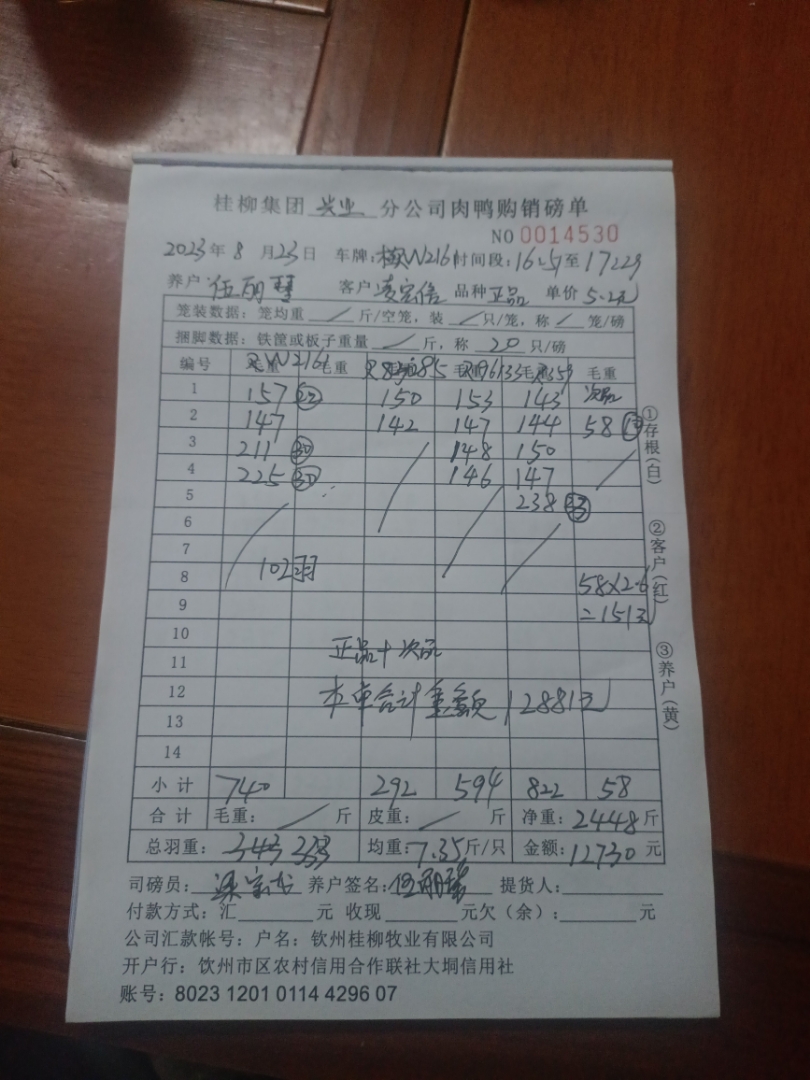 桂柳集团 兴业 分公司肉鸭购销磅单
NO 0014530
2023年 8 月 23 日 车牌: W216 时间段: 至 17:29
养户 伍丽 客户 凌宗信 品种 正品 单价 5.2元
笼装数据: 笼均重 / 斤/空笼, 装 / 只/笼, 称 / 笼/磅
捆脚数据: 铁筐或板子重量 / 斤, 称 20 只/磅
编号 W2161 毛重 毛重 毛重 毛重
1 157 22 150 153 143 次品
2 147 142 147 144 58
3 211 30 148 150
4 225 146 147
5 238 33
6
7
8 102羽 58×2.6
9 =151元
10
11 正品+次品
12 本单合计金额 12881元
13
14
小计 740 292 594 822 58
合计 毛重: / 斤 皮重: / 斤 净重: 2448 斤
总羽重: 343 333 均重: 7.35 斤/只 金额: 12730 元
司磅员: 养户签名: 伍丽 提货人:
付款方式: 汇 元 收现 元欠(余): 元
公司汇款帐号: 户名: 钦州桂柳牧业有限公司
开户行: 饮州市区农村信用合作联社大垌信用社
账号: 8023 1201 0114 4296 07
①存根(白)
②客户(红)
③养户(黄)